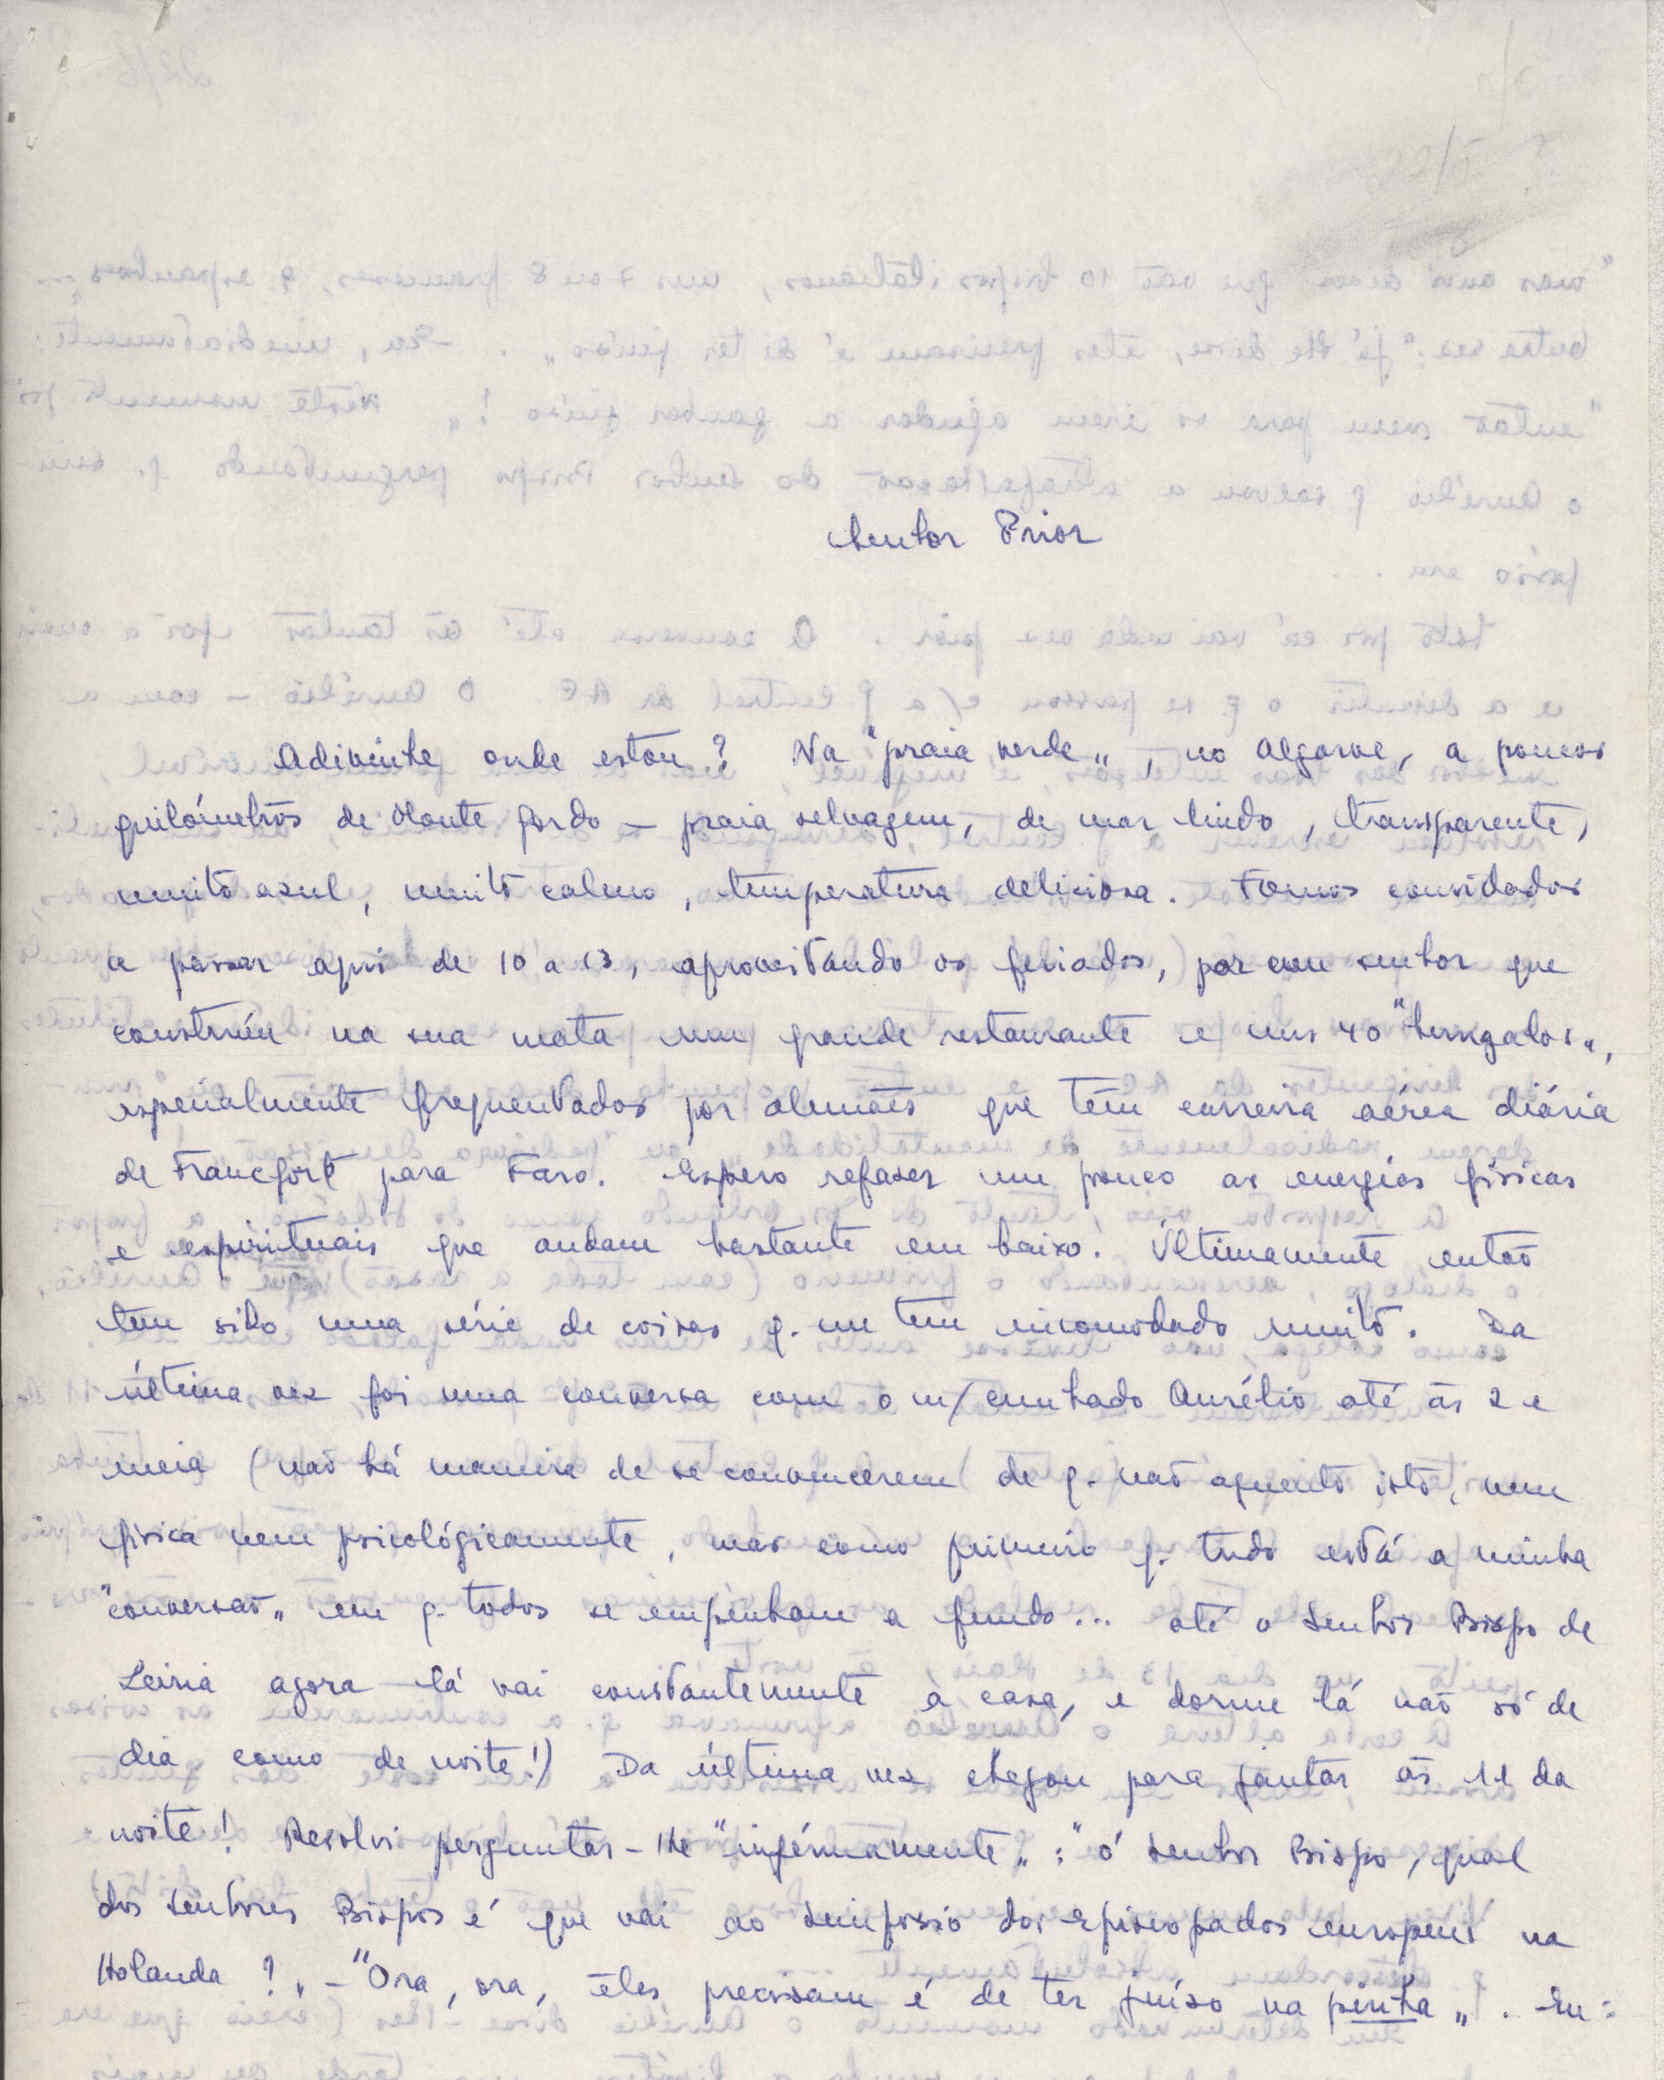 Senhor Prior
Adivinhe onde estou? Na "praia verde", no Algarve, a poucos
quilómetros de Monte Gordo — praia selvagem, de mar lindo, transparente,
muito azul, muito calmo, temperatura deliciosa. Fomos convidados
a passar aqui de 10 a 13, aproveitando os feriados, por um senhor que
construíu na sua mata um grande restaurante e uns 40 "bungalos",
especialmente frequentados por alemães que têm carreira aérea diária
de Francfort para Faro. Espero refazer um pouco as energias físicas
e espirituais que andam bastante em baixo. Últimamente então
tem sido uma série de coisas q. me tem incomodado muito. Da
última vez foi uma conversa com o m/ cunhado Aurélio até às 2 e
meia (não há maneira de se convencerem de q. não aguento isto, nem
física nem psicològicamente, mas como primeiro q. tudo está a minha
"conversão" em q. todos se empenham a fundo... até o Senhor Bispo de
Leiria agora lá vai constantemente a casa, e dorme lá não só de
dia como de noite!) Da última vez chegou para jantar às 11 da
noite! Resolvi perguntar-lhe "ingénuamente": "ó Senhor Bispo, qual
dos Senhores Bispos é que vai ao Simpósio dos Episcopados europeus na
Holanda?" — "Ora, ora, êles precisam é de ter juízo na pinha". Eu: